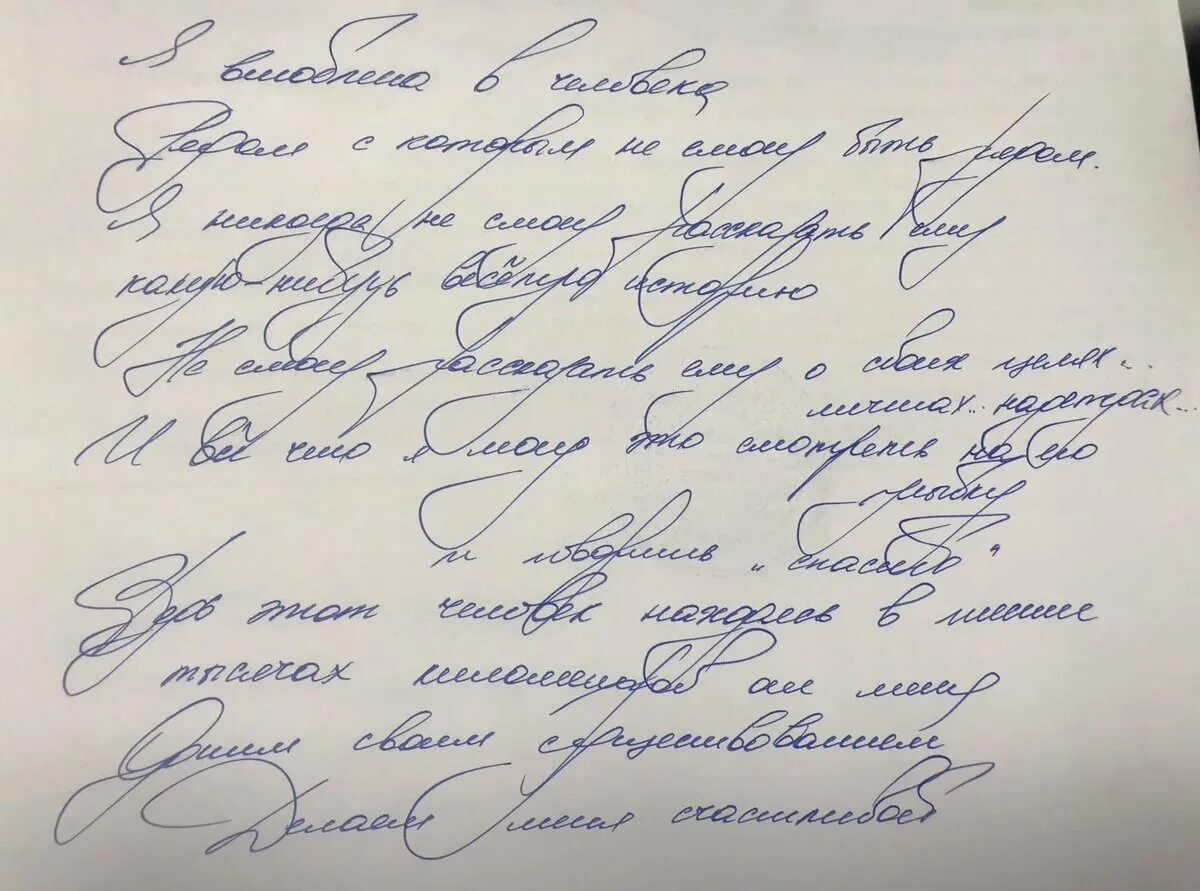 Я влюблена в человека
Рядом с которым не смогу быть рядом.
Я никогда не смогу рассказать ему
какую-нибудь весёлую историю
Не смогу рассказать ему о своих целях...
мечтах...
И всё что я могу это смотреть на его
улыбку
и говорить „спасибо“
Ведь этот человек находясь в
тысячах километров от меня
Одним своим существованием
Делает меня счастливой